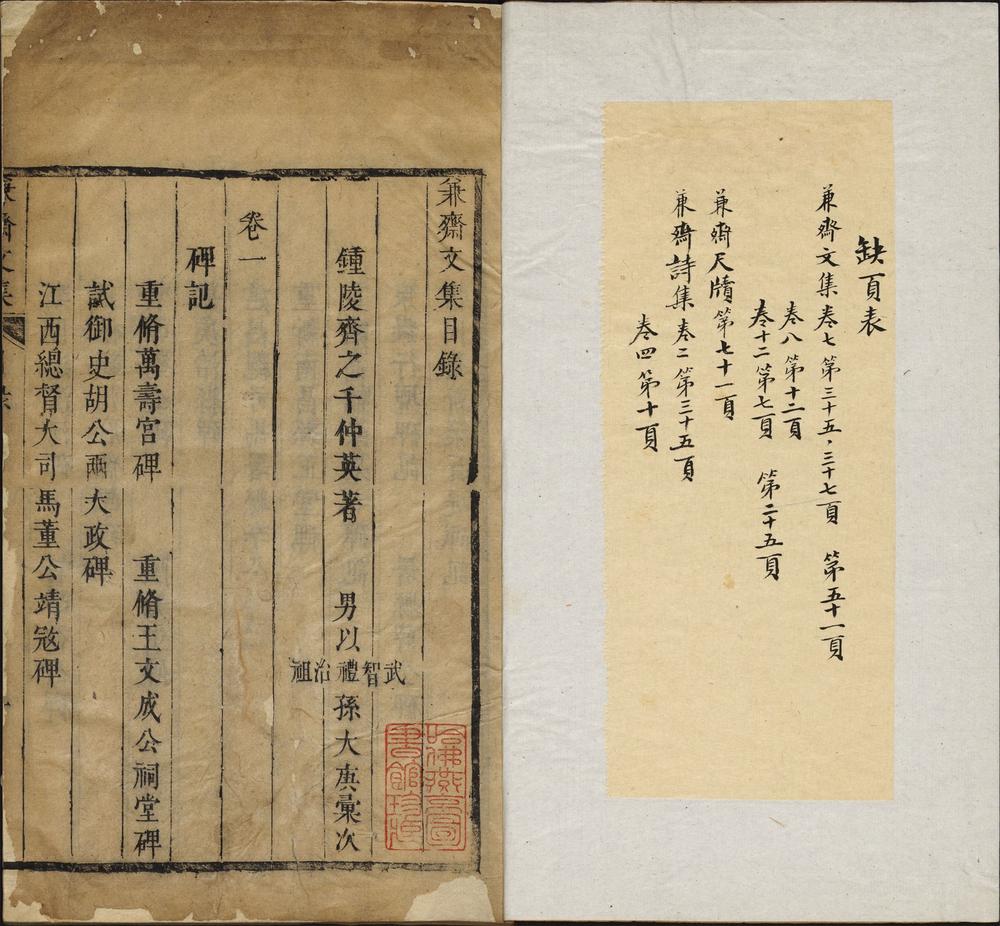 缺頁表
兼齋文集卷七第三十五·三十七頁 第五十一頁
卷八第十二頁
卷十二第七頁 第二十五頁
兼齋尺牘第七十一頁
兼齋詩集卷二第三十五頁
卷四第十頁
兼齋文集目錄
鍾陵齊之千仲英著 男以武智禮治祖孫大庚彙次
卷一
碑記
重脩萬壽宮碑 重脩王文成公祠堂碑
試御史胡公兩大政碑
江西總督大司馬董公靖寇碑
兼齋文集
哈佛燕京圖書館珍藏